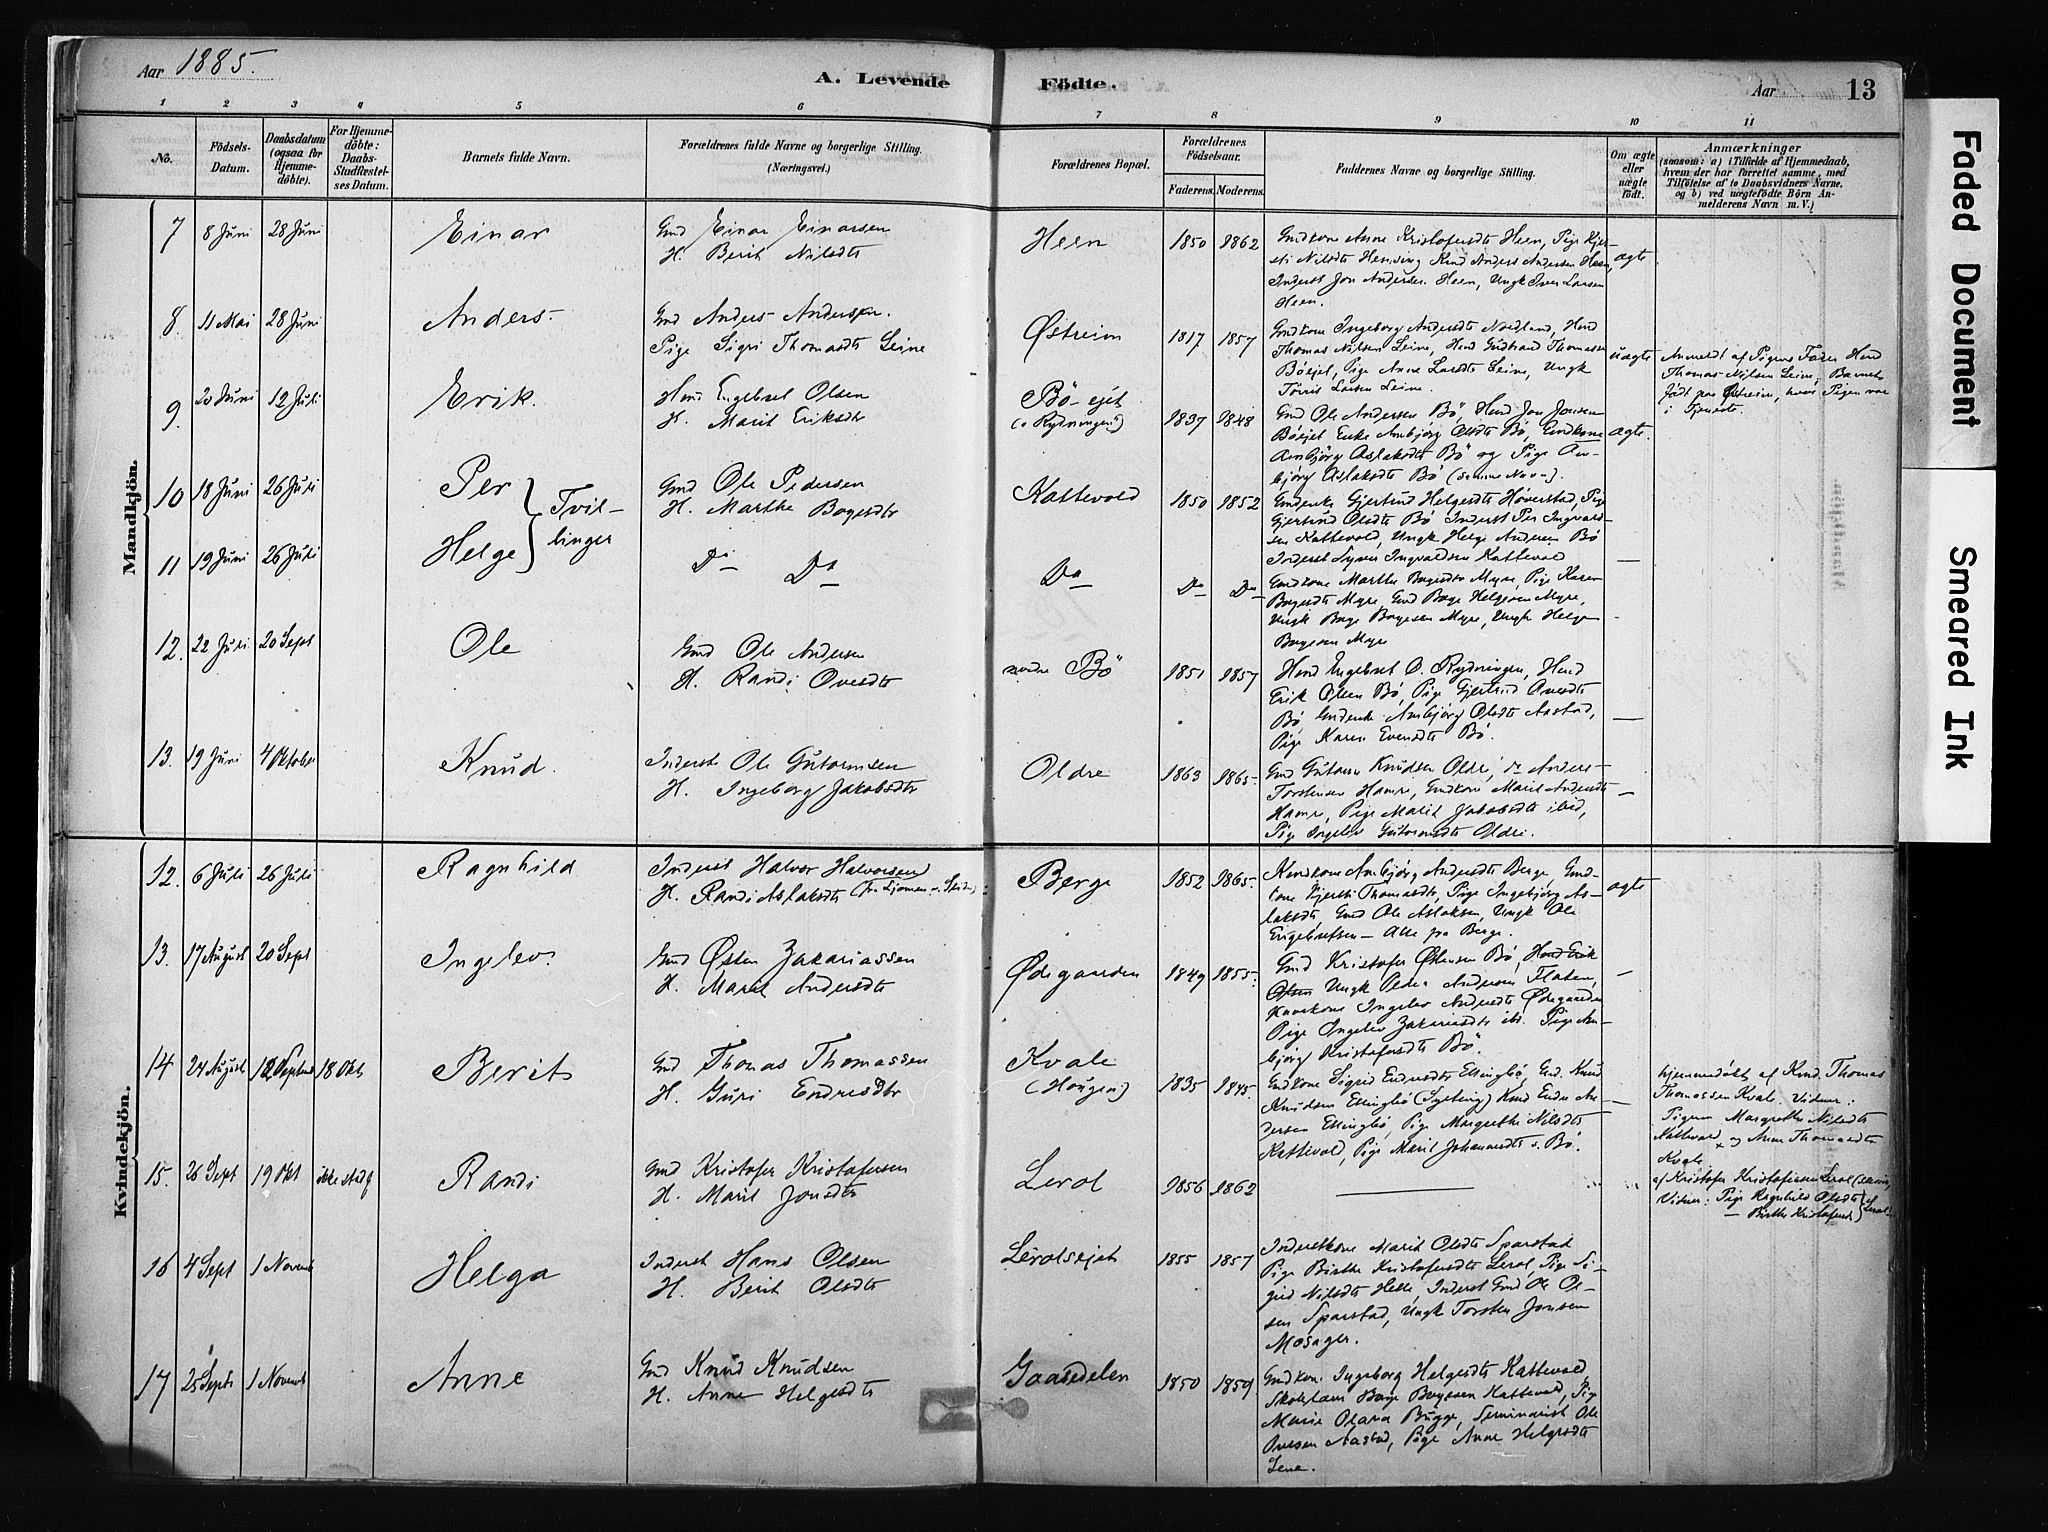 Aar 1885.
A. Levende
Födte.
Aar
13
1 2 3 4 5 6 7 8 9 10 11
No.
Födsels-Datum.
Daabsdatum (ogsaa for Hjemmedöbte).
For Hjemmedöbte: Daabs-Stadfæstelses Datum.
Barnets fulde Navn.
Forældrenes fulde Navne og borgerlige Stilling. (Næringsvei.)
Forældrenes Bopæl.
Forældrenes Födselsaar.
Faderens. Moderens.
Faddernes Navne og borgerlige Stilling.
Om ægte eller uægte födt.
Anmærkninger
(saasom: a) i Tilfælde af Hjemmedaab,
hvem der har forrettet samme, med
Tilföielse af to Daabsvidners Navne,
og b) ved uægtefödte Börn An-
melderens Navn m. V.)
Mandkjön.
7 8 Juni 28 Juni Einar
Gmd Einar Einarsen
H. Berit Nilsdtr
Heen 1850 1862
Gmdkone Anne Kristofersdtr Heen, Pige Kjer-
sti Nilsdtr Hemsing Kmd Anders Andersen Heen,
Inderst Jon Andersen Heen, Ungk Iver Larsen
Heen.
ægte
8. 11 Mai 28 Juni Anders
Gmd Anders Andersen.
Pige Sigri Thomasdtr Leine
Østreim 1817 1857
Gmdkone Ingeborg Andersdtr Nordland, Hmd
Thomas Nilsen Leine, Hmd Gudbrand Thomassen
Böejet, Pige Anne Larsdtr Leine, Ungk
Torris Larsen Leine.
uægte
Anmeldt af Pigens Fader Hmd
Thomas Nilsen Leine, Barnet
født paa Østreim, hvor Pigen var
i Tjeneste.
9. 20 Juni 12 Juli Erik.
Hmd Engebret Olsen
H. Marit Eriksdtr
Bö-ejet
(Rydningen)
1837 1848
Gmd Ole Andersen Bö, Hmd Jon Jonsen
Böejet Enke Ambjörg Olsdtr Bö, Gmdkone
Ambjörg Aslaksdtr Bö og Pige Am-
björg Aslaksdtr Bö (samme Navn).
ægte.
10 18 Juni 26 Juli Per
Tvil-
linger
Gmd Ole Pedersen
H. Marthe Bogesdtr
Kattevold 1850 1852
Gmdenke Gjertrud Helgesdtr Høverstad, Pige
Gjertrud Olsdtr Bö Inderst Per Ingvald-
sen Kattevold, Ungk Helge Andersen Bö
Inderst Syver Ingvaldsen Kattevold
11 19 Juni 26 Juli Helge
Do Do
Do Do Do
Gmdkone Marthe Bogesdtr Myre, Pige Karen
Bogesdtr Myre Gmd Boge Helgesen Myre,
Ungk Boge Bogesen Myre, Ungk Helge
Bogesen Myre
12. 22 Juli 20 Sept Ole
Gmd Ole Andersen
H. Randi Ovesdtr
nordre Bö 1851 1857
Hmd Engebret O. Rydningen, Hmd
Erik Olsen Bö, Pige Gjertrud Ovesdtr
Bö Gmdenke Ambjörg Olsdtr Aastad,
Pige Karen Evensdtr Bö.
13. 19 Juni 4 Oktober Knud.
Inderst Ole Gutormsen
H. Ingeborg Jakobsdtr
Oldre 1863 1865.
Gmd Gutorm Knudsen Oldre, do Anders
Torstensen Hamre, Gmdkone Marit Andersdtr
Hamre, Pige Marit Jakobsdtr ibid,
Pige Ingelev Gutormsdtr Oldre.
Kvindekjön.
12. 6 Juli 26 Juli Ragnhild
Inderst Halvor Halvorsen
H. Randi Aslaksdtr
Berge 1852 1865.
Kmdkone Ambjörg Andersdtr Berge, Gmd-
kone Kjersti Thomasdtr, Pige Ingebjörg As-
laksdtr, Gmd Ole Aslaksen, Ungk Ole
Engebretsen – Alle paa Berge.
ægte
13. 17 August 20 Sept Ingelev.
Gmd Østen Zakariassen
H. Marit Andersdtr
Ødegaarden 1849 1855.
Gmd Kristofer Østensen Bö, Hmd Erik
Olsen Ungk Peder Andersen Flaten,
Kaarkone Ingelev Andersdtr Ødegaarden
Pige Ingelev Zakariasdtr ibi. Pige Am-
björg Kristofersdtr Bö.
14 24 August 12 Septemb 18 Okt Berit
Gmd Thomas Thomassen
H. Guri Endresdtr
Kvale
(Haugen)
1835 1845.
Gmdkone Sigrid Endresdtr Ellingbö, Gmd. Knud
Knudsen Ellingbö Kmd Endre An-
dersen Ellingbö, Pige Margrethe Nilsdtr
Kattevold, Pige Marit Johannesdtr s. Bö.
Hjemmedöbt af Kmd. Thomas
Thomassen Kvale. Vidner:
Pigerne Margrethe Nilsdtr
Kattevold og Anne Thomasdtr
Kvale
15. 26 Sept 19 Okt ikke stadf Randi
Gmd Kristofer Kristofersen
H. Marit Jonsdtr
Lerol 1856 1862
af Kristofer Kristofersen Lerol
Vidner: Pige Ragnhild Olsdtr
– Birthe Kristofersdtr Lerol
16 4 Sept 1 Novemb Helga
Inderst Hans Olsen
H. Berit Olsdtr
Lerolsejet 1855 1857
Inderstkone Marit Olsdtr Sparstad
Pige Birthe Kristofersdtr Lerol, Pige Si-
grid Nilsdtr Helle, Inderst Gmd Ole Ol-
sen Sparstad, Ungk Torsten Jonsen
Mosager.
17 25 Septb 1 Novemb Anne
Gmd Knud Knudsen
H. Anne Helgesdtr
Gaasedelen 1850 1859.
Gmdkone Ingeborg Helgesdtr Kattevold
Skolelærer Boge Bogesen Kattevold, Pige
Marie Olava Bugge, Seminarist Ole
Ovesen Aastad, Pige Anne Helgesdtr
Lene.
Faded Document
Smeared Ink